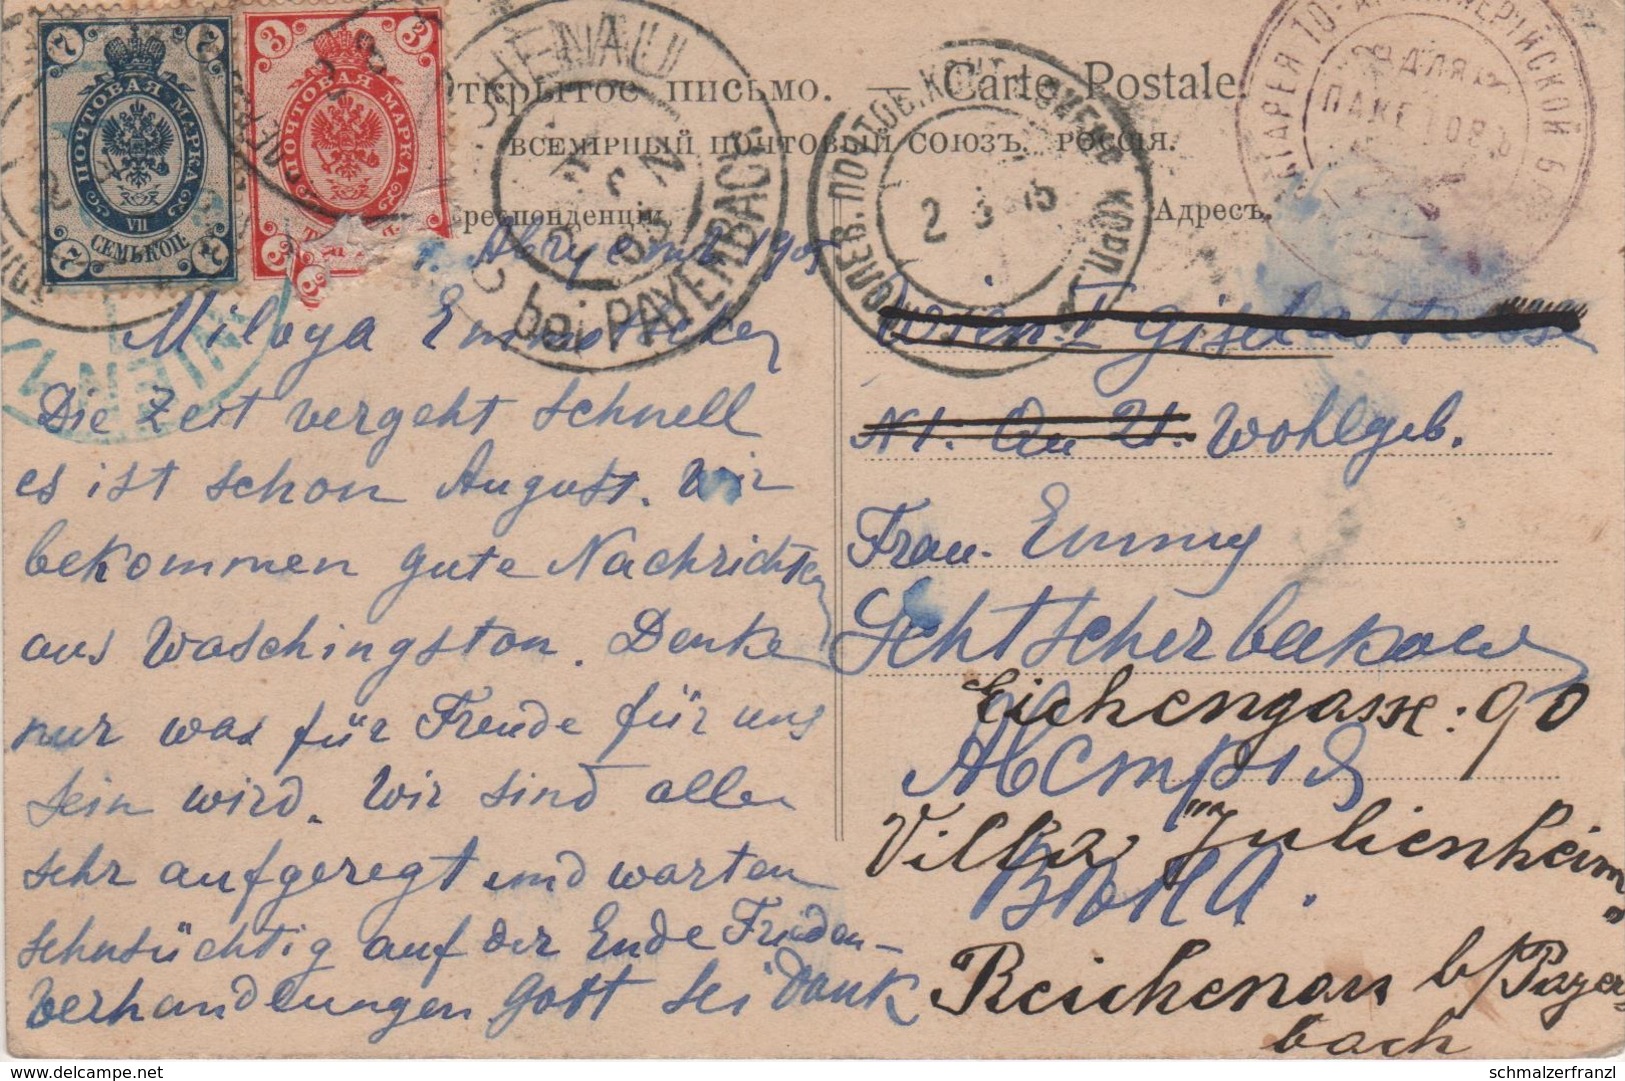 7 7
ПОЧТОВАЯ МАРКА
VII
СЕМЬ КОП.
7 7
3 3
ПОЧТОВАЯ МАРКА
3 3
ткрытое письмо. — Carte Postale.
ВСЕМІРНЫЙ ПОЧТОВЫЙ СОЮЗЪ. РОССІЯ.
респонденціи Адресъ.
HENAU
bei PAYERBACH
2 3
10 АРТИЛЛЕРІЙСКОЙ
ДЛЯ
ПАКЕТОВЪ
WIEN
1905
Miloya
Die Zeit vergeht schnell
es ist schon August. Wir
bekommen gute Nachrichten
aus Waschingston. Denke
nur was für Freude für uns
sein wird. Wir sind alle
sehr aufgeregt und warten
sehnsüchtig auf der Ende Frieden-
verhandlungen Gott sei Dank
Wien I Giselastrasse
Wohlgeb.
Frau. Emmy
Schtscherbakow
Eichengasse: 90
Австрія
Villa "Julienheim"
Вѣна.
Reichenau b/Payer-
bach
schmalzerfranzl